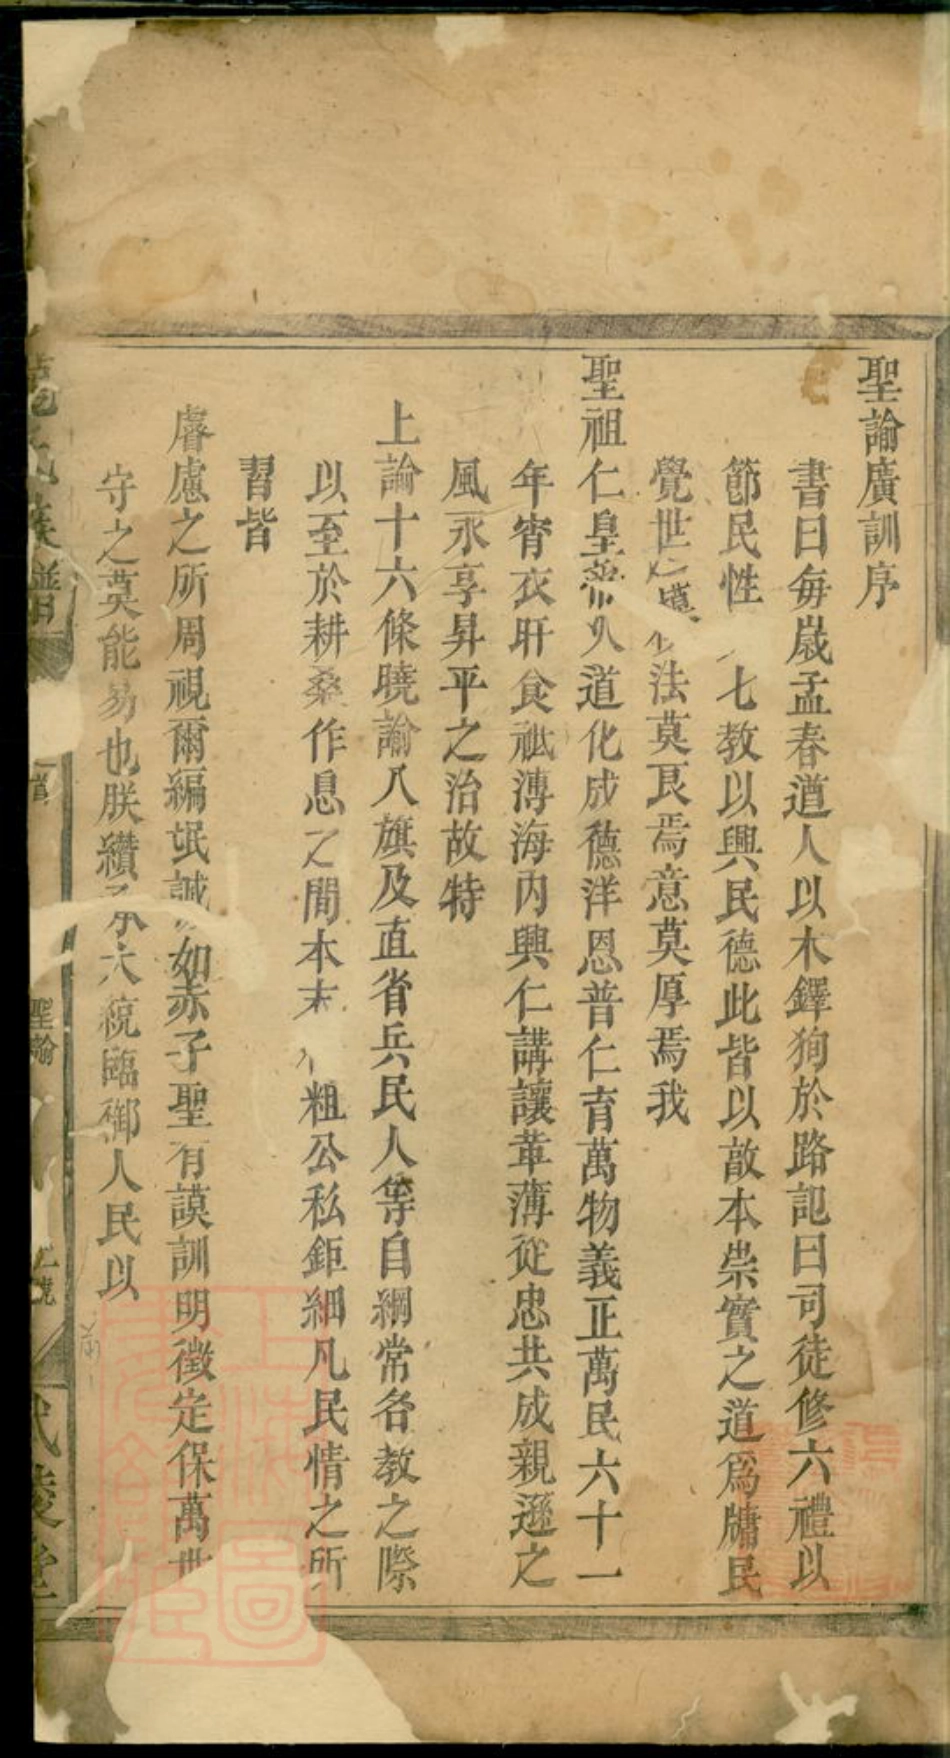 聖諭廣訓序
書曰每歲孟春遒人以木鐸狥於路記曰司徒修六禮以
節民性 七教以興民德此皆以敦本崇實之道爲牖民
覺世 法莫良焉意莫厚焉我
聖祖仁皇帝久道化成德洋恩普仁育萬物義正萬民六十一
年宵衣旰食祗溥海內興仁講讓革薄從忠共成親遜之
風永享昇平之治故特
上諭十六條曉諭八旗及直省兵民人等自綱常名教之際
以至於耕桑作息之間本末 粗公私鉅細凡民情之所
習皆
睿慮之所周視爾編氓誠如赤子聖有謨訓明徵定保萬世
守之莫能易也朕纘承大統臨御人民以
族譜
聖諭